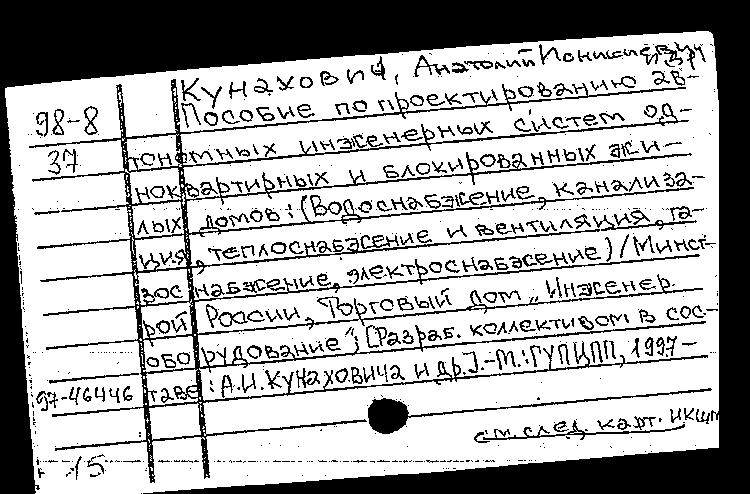 Кунахович, Анатолий
98-8 Пособие по проектированию ав-
37 тономных инженерных систем од-
ноквартирных и блокированных жи-
лых домов: (Водоснабжение, канализа-
ция, теплоснабжение и вентиляция, га-
зоснабжение, электроснабжение)/Минст-
рой России, Торговый дом „Инженер.
оборудование"; [Разраб. коллективом в сос-
97-46446 таве: А.И. Кунаховича и др.].-М.: ГУПЦПП, 1997-
см. след. карт.
15